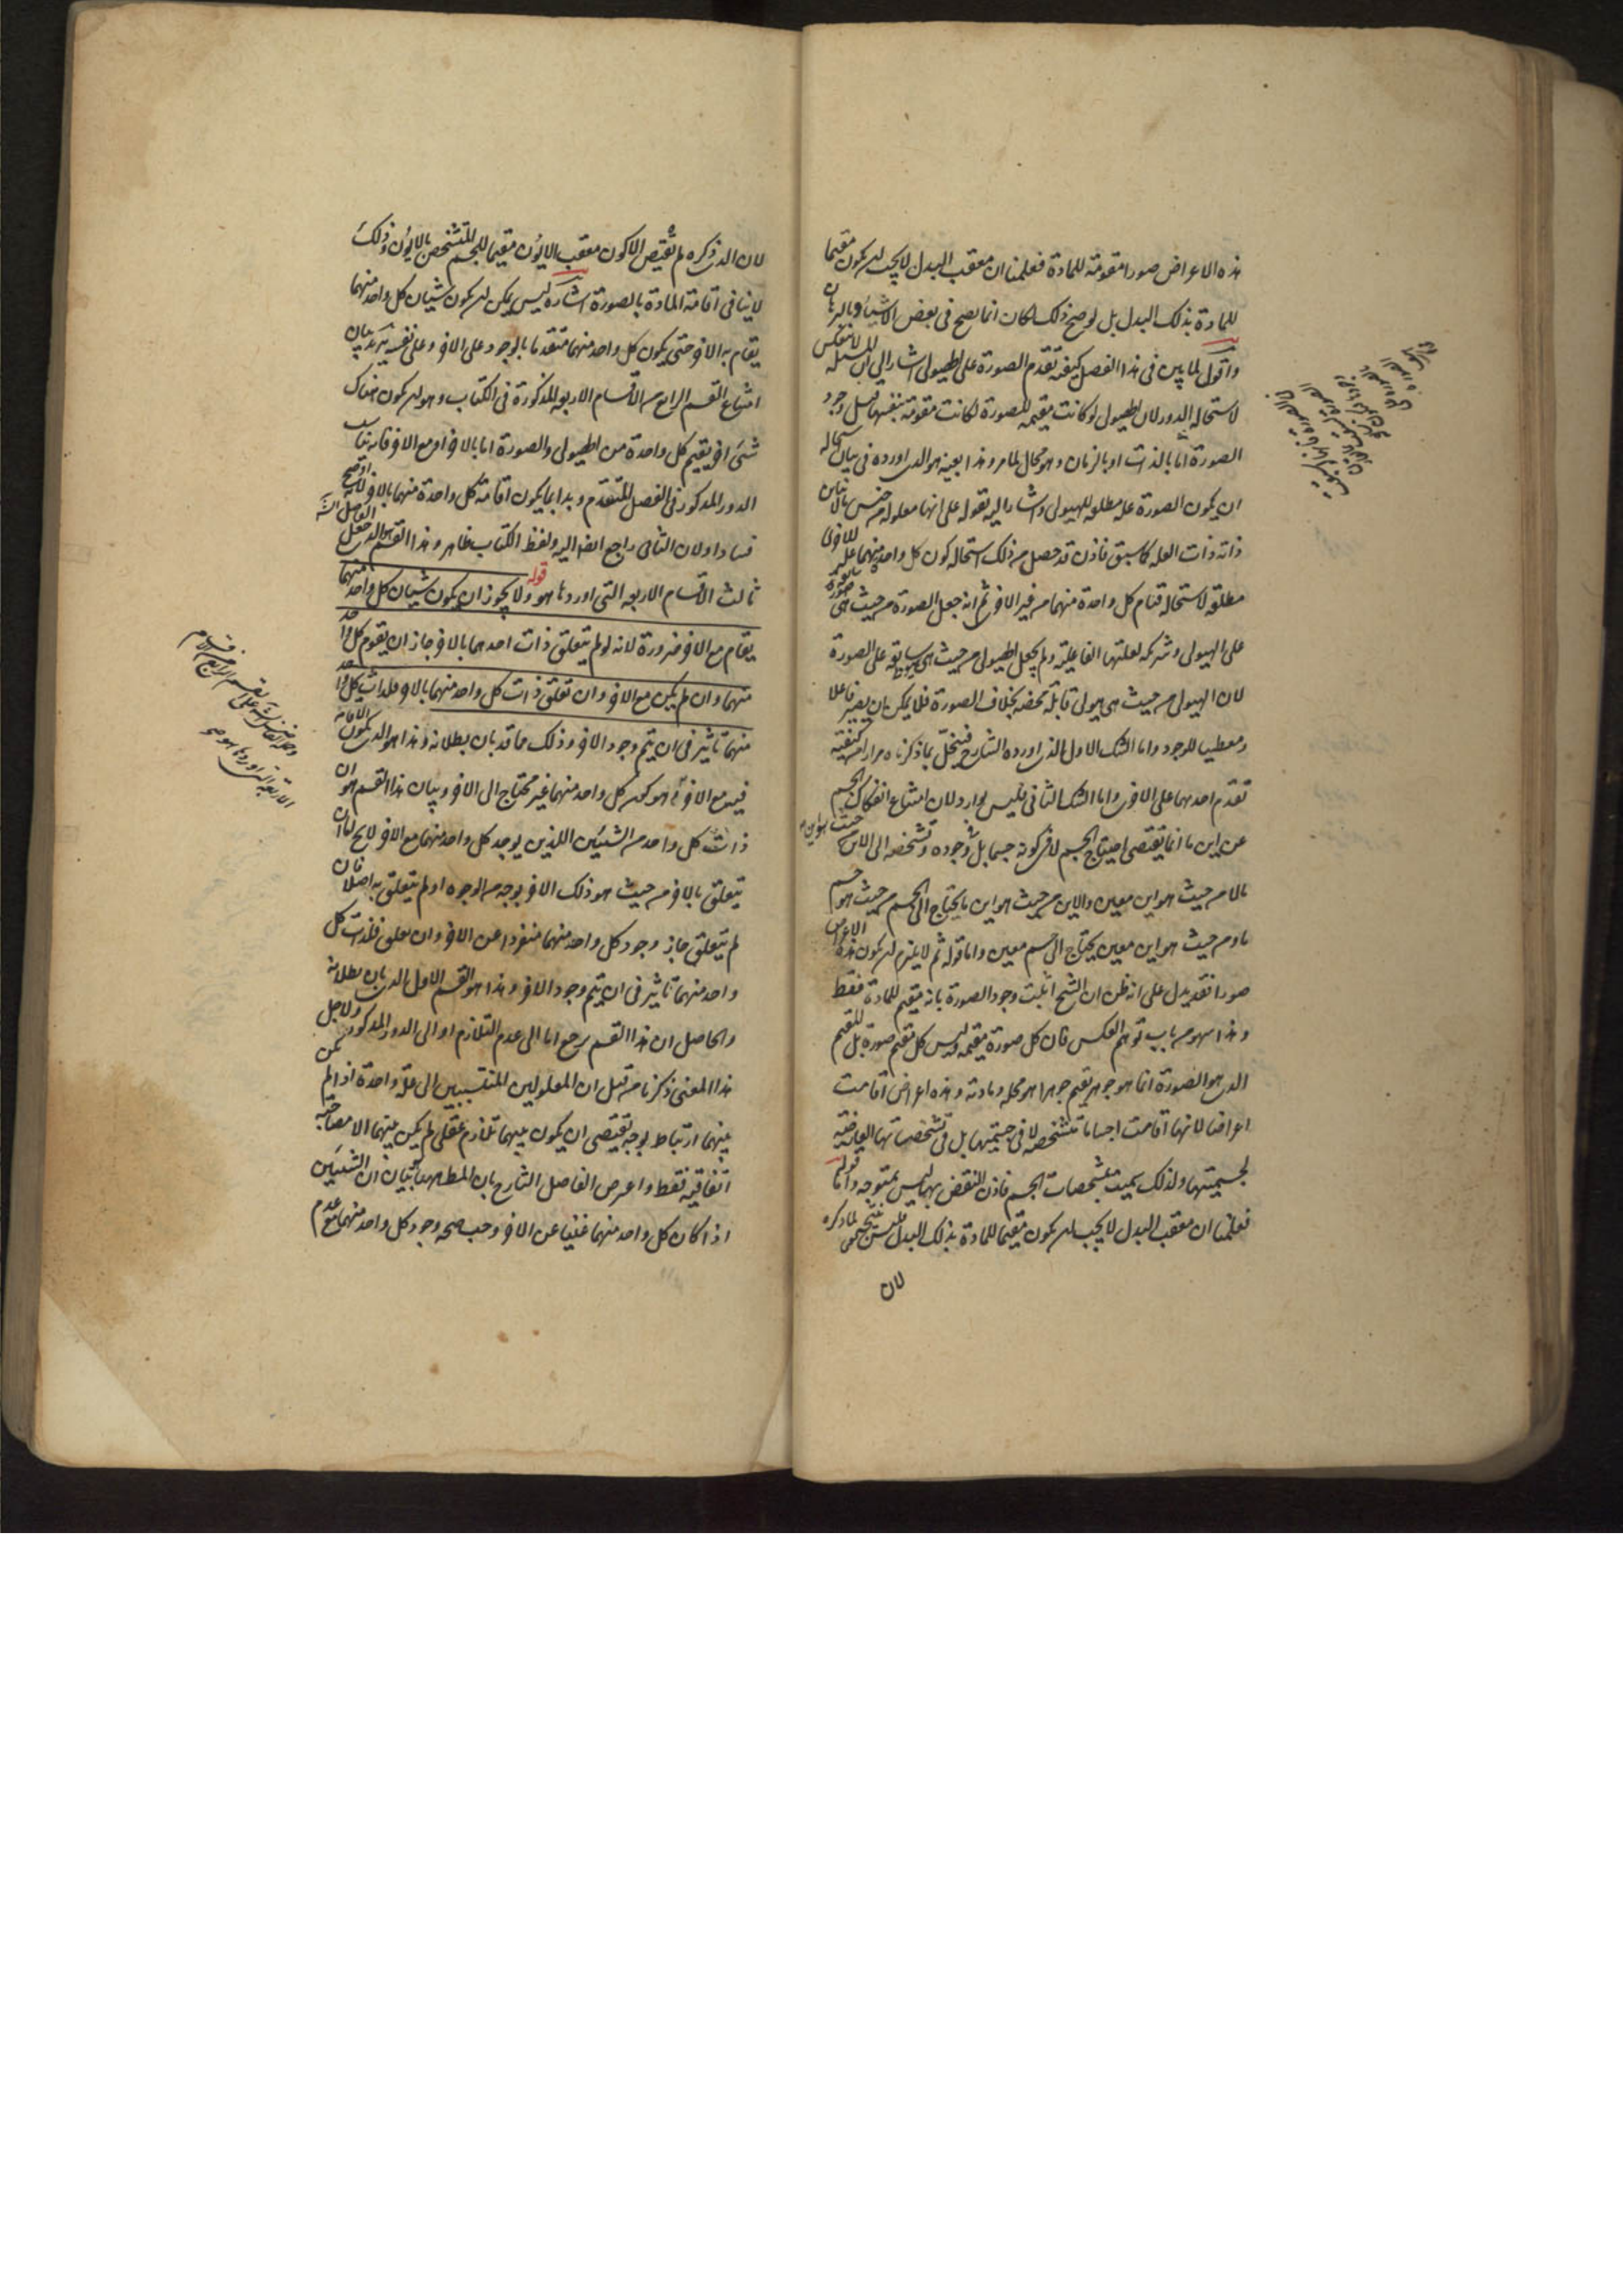 هذه الاعراض صورا مقومة للمادة فعلمنا ان معقب البدل لا يجب ان يكون مقيما
للمادة بذلك البدل بل لو صح ذلك لكان انما يصح فى بعض الاشياء وبالبرهان
واقول لما بين فى هذا الفصل كيفية تقدم الصورة على الهيولى اشار الى ان المسئلة لا تنعكس
لاستحالة الدور لان الهيولى لو كانت مقيمة للصورة لكانت متقومة بنفسها قبل وجود
الصورة اما بالذات او بالزمان وهو محال لما مر وهذا بعينه هو الذى اورده فى بيان استحالة
ان يكون الصورة علة مطلقة للهيولى واشار اليه بقوله على انها معلولة من جنس ما لا تباين
ذاته ذات العلة كما سبق فاذن قد حصل من ذلك استحالة كون كل واحد منهما علة للاخرى
مطلقة لاستحالة قيام كل واحدة منهما من غير الاخرى ثم انه جعل الصورة من حيث هى صورة سابقة
على الهيولى وشريكة لعلتها الفاعلية ولم يجعل الهيولى من حيث هى هيولى سابقة على الصورة
لان الهيولى من حيث هى هيولى قابلة محضة بخلاف الصورة فلا يمكن ان يصير فاعلا
ومعطيا للوجود واما الشك الاول الذى اورده الشارح فينحل بما ذكرناه مرارا من كيفية
تقدم احدهما على الاخرى واما الشك الثانى فليس بوارد لان امتناع انفكاك الجسم
عن اين ما انما يقتضى احتياج الجسم لا فى كونه جسما بل فى وجوده وتشخصه الى الاين من حيث هو اين
ما لا من حيث هو اين معين والاين من حيث هو اين ما يحتاج الى الجسم من حيث هو جسم
ما ومن حيث هو اين معين يحتاج الى جسم معين واما قوله ثم لا يلزم ان يكون هذه الاعراض
صورا فقد يدل على انه ظن ان الشيخ اثبت وجود الصورة بانه مقيم للمادة فقط
وهذا سهو من باب توهم العكس فان كل صورة مقيمة وليس كل مقيم صورة بل المقيم
الذى هو الصورة انما هو جوهر يقيم جوهرا هو محله ومادته وهذه اعراض اقامت
اعراضا لانها اقامت اجساما متشخصة لا فى جسميتها بل فى تشخصاتها العارضة
لجسميتها ولذلك سميت مشخصات الجسم فاذن النقض بها ليس بمتوجه واما قوله
فعلمنا ان معقب البدل لا يجب ان يكون مقيما للمادة بذلك البدل فليس بنتيجة لما ذكره
لان
لان الذى ذكره لم يقتض الا كون معقب الايون مقيما للجسم المتشخص بالايون وذلك
لا ينافى اقامة المادة بالصورة اشارة ليس يمكن ان يكون شيئان كل واحد منهما
يقام به الاخر حتى يكون كل واحد منهما متقدما بالوجود على الاخر وعلى نفسه يريد بيان
امتناع القسم الرابع من الاقسام الاربعة المذكورة فى الكتاب وهو ان يكون هناك
شىء اخر يقيم كل واحدة من الهيولى والصورة اما بالاخر او مع الاخر فانه يناسب
الدور المذكور فى الفصل المتقدم وبدا بما يكون اقامة كل واحدة منهما بالاخر لانه اوضح
فسادا ولان الثانى راجع ايضا اليه ولفظ الكتاب ظاهر وهذا القسم هو الذى جعل الفاضل الشارح
ثالث الاقسام الاربعة التى اوردها هو قوله ولا يجوز ان يكون شيئان كل واحد منهما
يقام مع الاخر ضرورة لانه لو لم يتعلق ذات احدهما بالاخر جاز ان يقوم كل واحد
منهما وان لم يكن مع الاخر وان تعلق ذات كل واحد منهما بالاخر فلذات كل واحد
منهما تأثير فى ان يتم وجود الاخر وذلك مما قد بان بطلانه وهذا هو الذى يكون الاقامة
فيه مع الاخر وهو كون كل واحد منهما غير محتاج الى الاخر وبيان هذا القسم هو ان
ذات كل واحد من الشيئين اللذين يوجد كل واحد منهما مع الاخر لا يخ اما ان
يتعلق بالاخر من حيث هو ذلك الاخر بوجه من الوجوه او لم يتعلق به اصلا فان
لم يتعلق جاز وجود كل واحد منهما منفردا عن الاخر وان تعلق فلذات كل
واحد منهما تأثير فى ان يتم وجود الاخر وهذا هو القسم الاول الذى بان بطلانه
والحاصل ان هذا القسم يرجع اما الى عدم التلازم او الى الدور المذكور ولاجل
هذا المعنى ذكرنا من قبل ان المعلولين المنتسبين الى علة واحدة اذا لم يكن
بينهما ارتباط بوجه يقتضى ان يكون بينهما تلازم عقلى لم يكن بينهما الا مصاحبة
اتفاقية فقط واعترض الفاضل الشارح بان المط ههنا بيان ان الشيئين
اذا كان كل واحد منهما غنيا عن الاخر وجب صحة وجود كل واحد منهما مع عدم